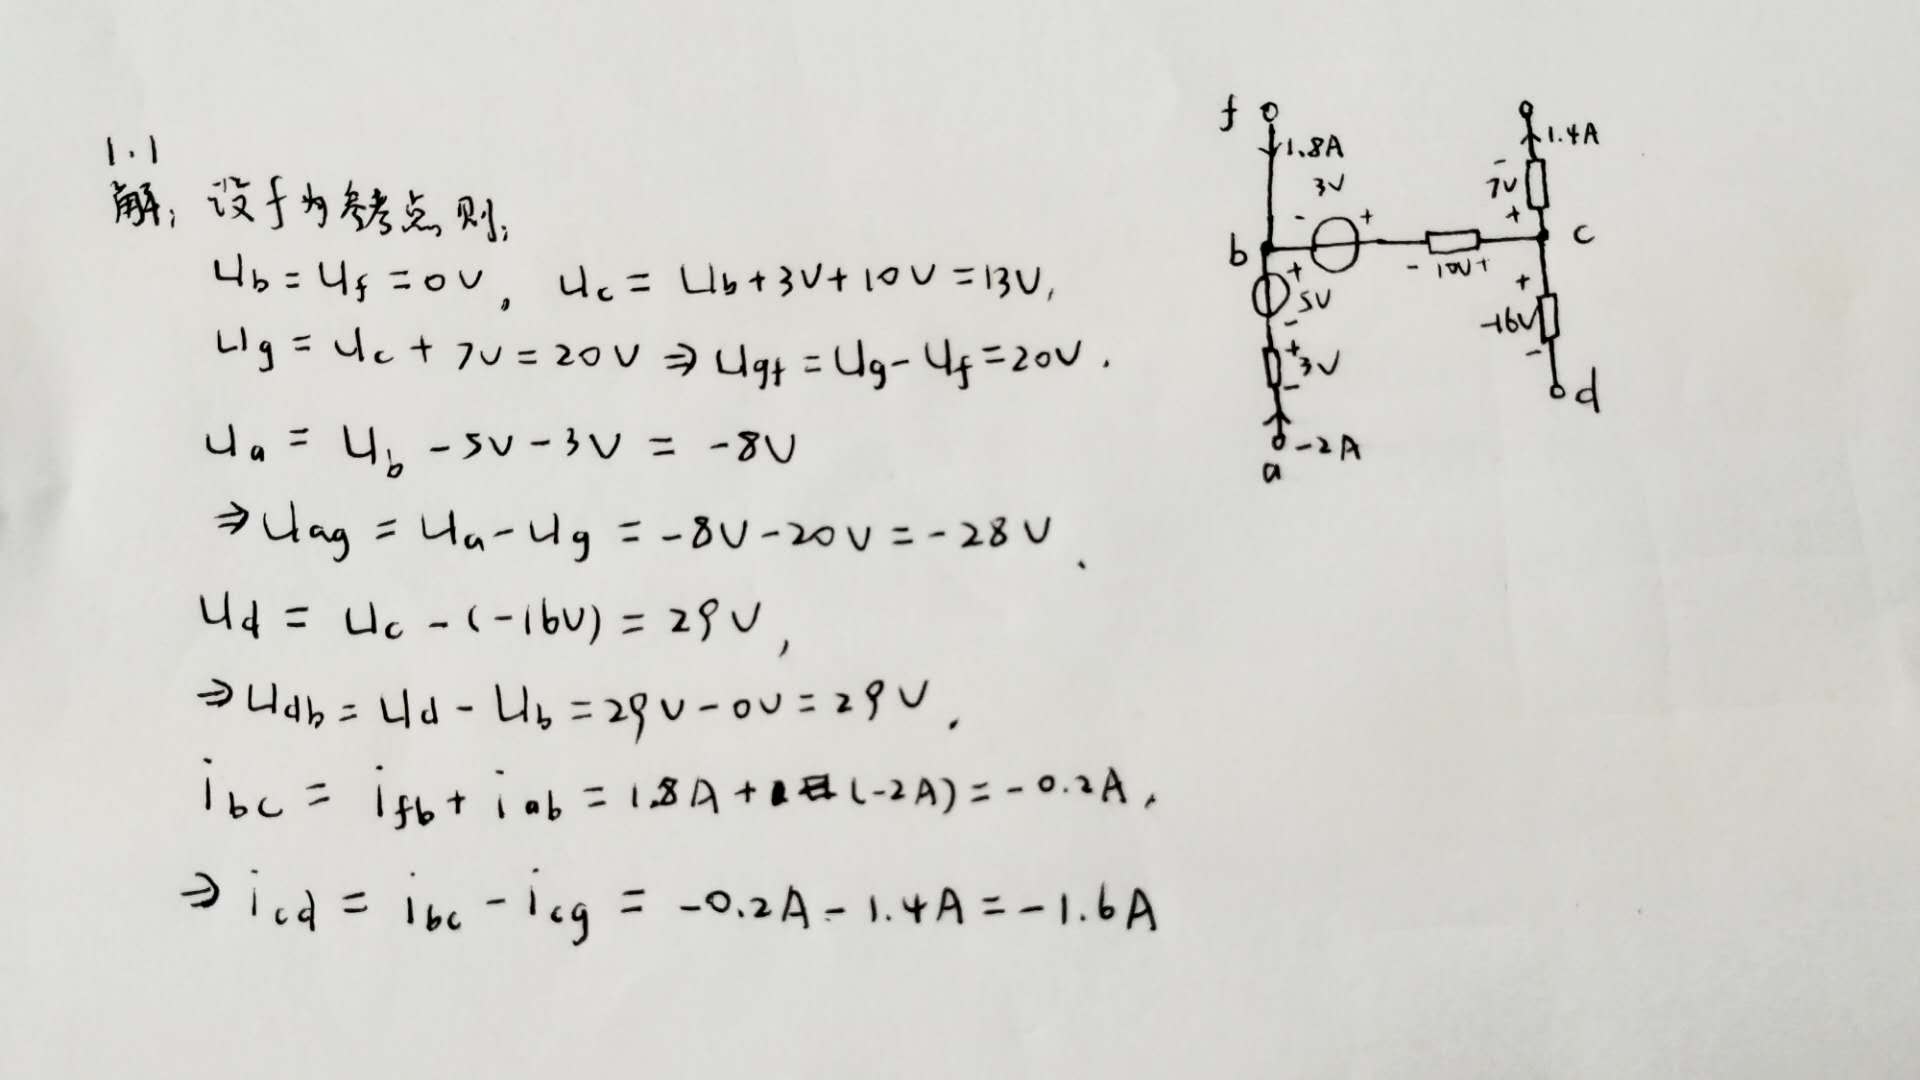 1.1
解: 设f为参考点则:
u_b = u_f = 0V, u_c = u_b + 3V + 10V = 13V,
u_g = u_c + 7V = 20V ⇒ u_gf = u_g - u_f = 20V.
u_a = u_b - 5V - 3V = -8V
⇒ u_ag = u_a - u_g = -8V - 20V = -28V.
u_d = u_c - (-16V) = 29V,
⇒ u_db = u_d - u_b = 29V - 0V = 29V.
i_bc = i_fb + i_ab = 1.8A + (-2A) = -0.2A,
⇒ i_cd = i_bc - i_cg = -0.2A - 1.4A = -1.6A
f
1.8A
1.4A
3V
- +
-
7V
+
b
c
- 10V +
+
5V
-
+
-16V
-
+
3V
-
d
-2A
a